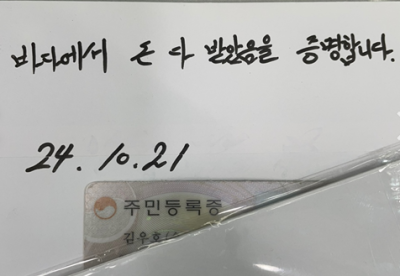 바다에서 돈 다 받았음을 증명합니다.
24. 10. 21
주민등록증